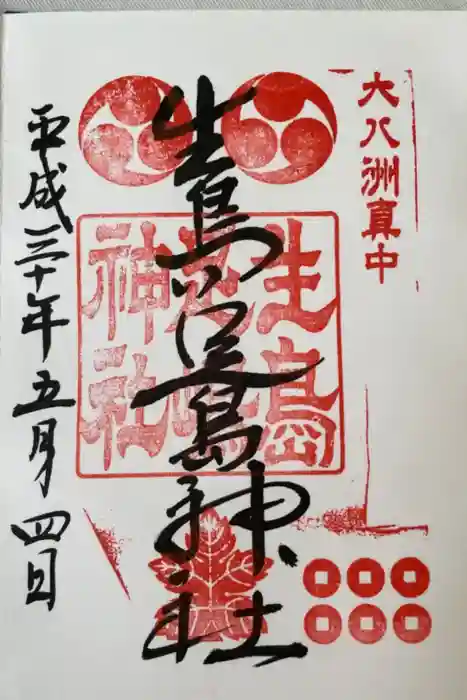 大八洲真中
生島
足島
神社
生島足島神社
平成三十年五月四日